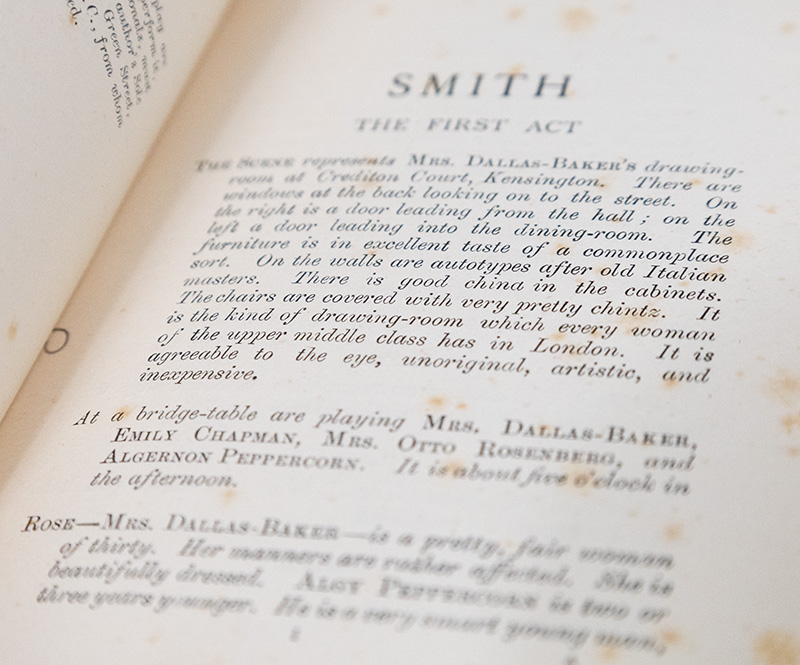 play are
perform it.
onals, must
author's sole
Green Street,
C., from whom
ed.
SMITH
THE FIRST ACT
THE SCENE represents MRS. DALLAS-BAKER'S drawing-
room at Crediton Court, Kensington. There are
windows at the back looking on to the street. On
the right is a door leading from the hall; on the
left a door leading into the dining-room. The
furniture is in excellent taste of a commonplace
sort. On the walls are autotypes after old Italian
masters. There is good china in the cabinets.
The chairs are covered with very pretty chintz. It
is the kind of drawing-room which every woman
of the upper middle class has in London. It is
agreeable to the eye, unoriginal, artistic, and
inexpensive.
At a bridge-table are playing MRS. DALLAS-BAKER,
EMILY CHAPMAN, MRS. OTTO ROSENBERG, and
ALGERNON PEPPERCORN. It is about five o'clock in
the afternoon.
ROSE—MRS. DALLAS-BAKER—is a pretty, fair woman
of thirty. Her manners are rather affected. She is
beautifully dressed. ALGY PEPPERCORN is two or
three years younger. He is a very smart young man,